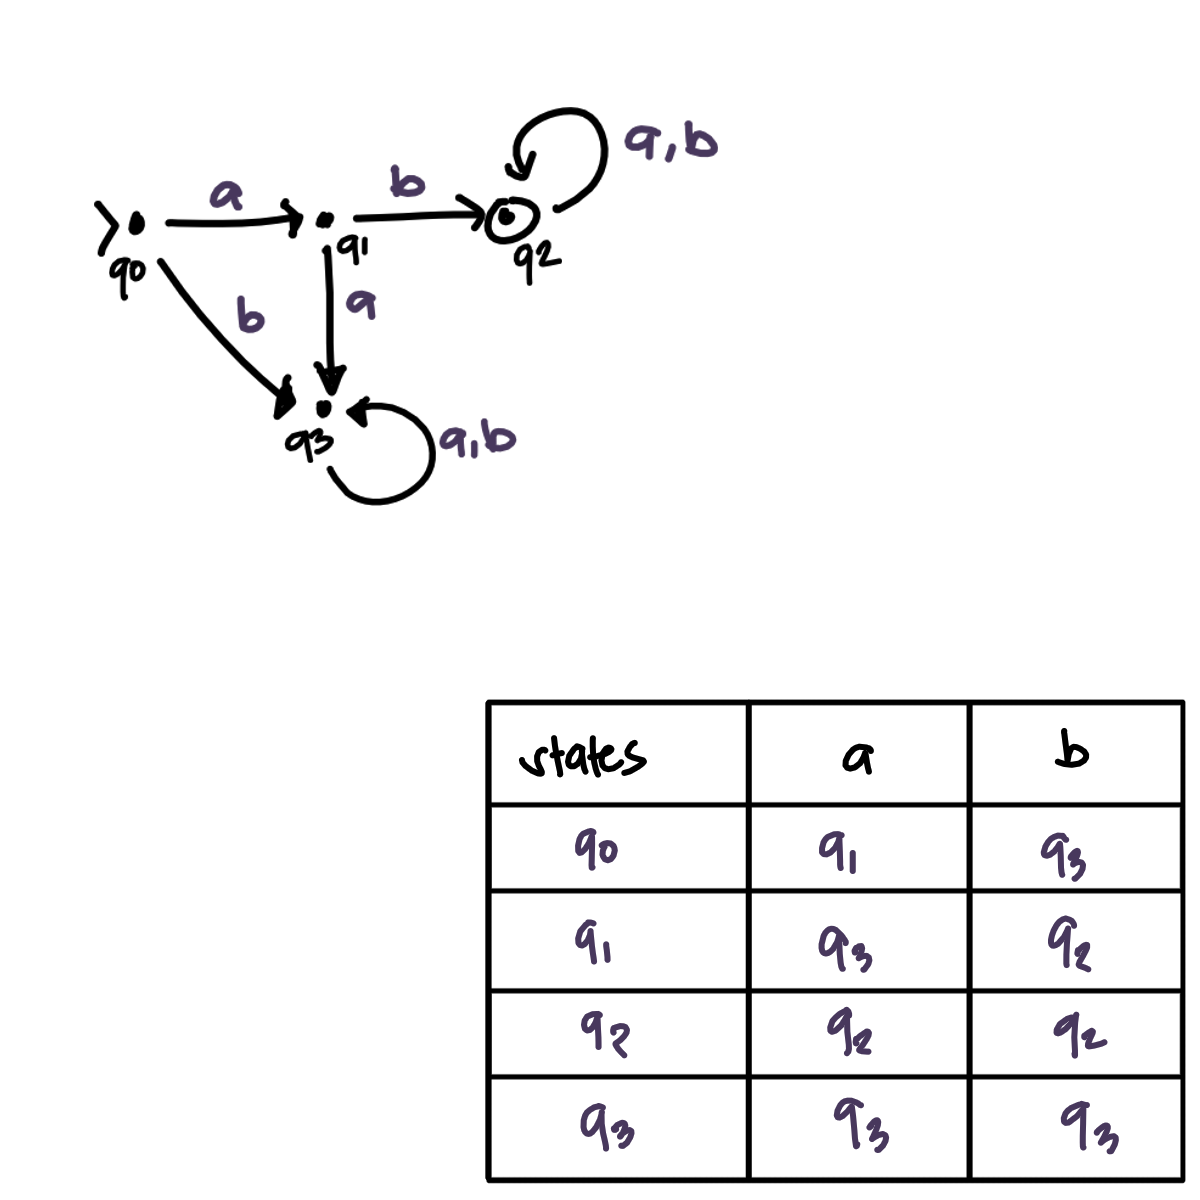 a,b
a b
q0 q1 q2
b a
q3 a,b
states a b
q0 q1 q3
q1 q3 q2
q2 q2 q2
q3 q3 q3